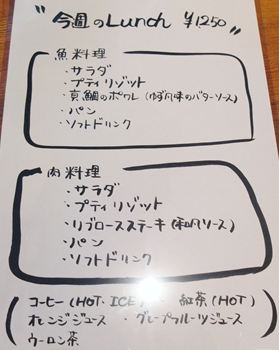 "今週のLunch ¥1250"
魚料理
・サラダ
・プティリゾット
・真鯛のポワレ(ゆず風味のバターソース)
・パン
・ソフトドリンク
肉料理
・サラダ
・プティリゾット
・リブロースステーキ(和風ソース)
・パン
・ソフトドリンク
(コーヒー(HOT・ICE)・紅茶(HOT)
オレンジジュース・グレープフルーツジュース
ウーロン茶)